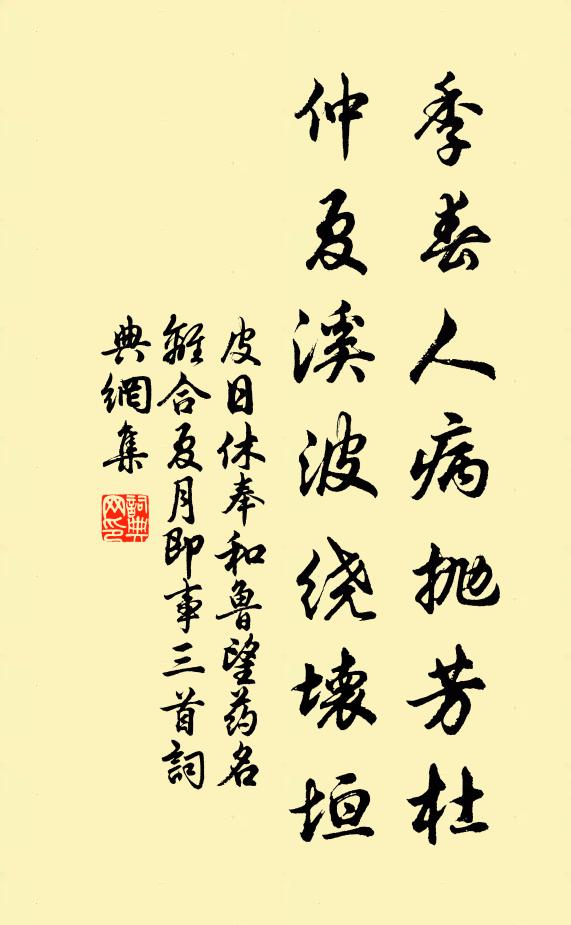 季春人病抛芳杜
仲夏溪波绕壞垣
皮日休奉和鲁望药名
離合夏月即事三首詞
典網集
詞典网印